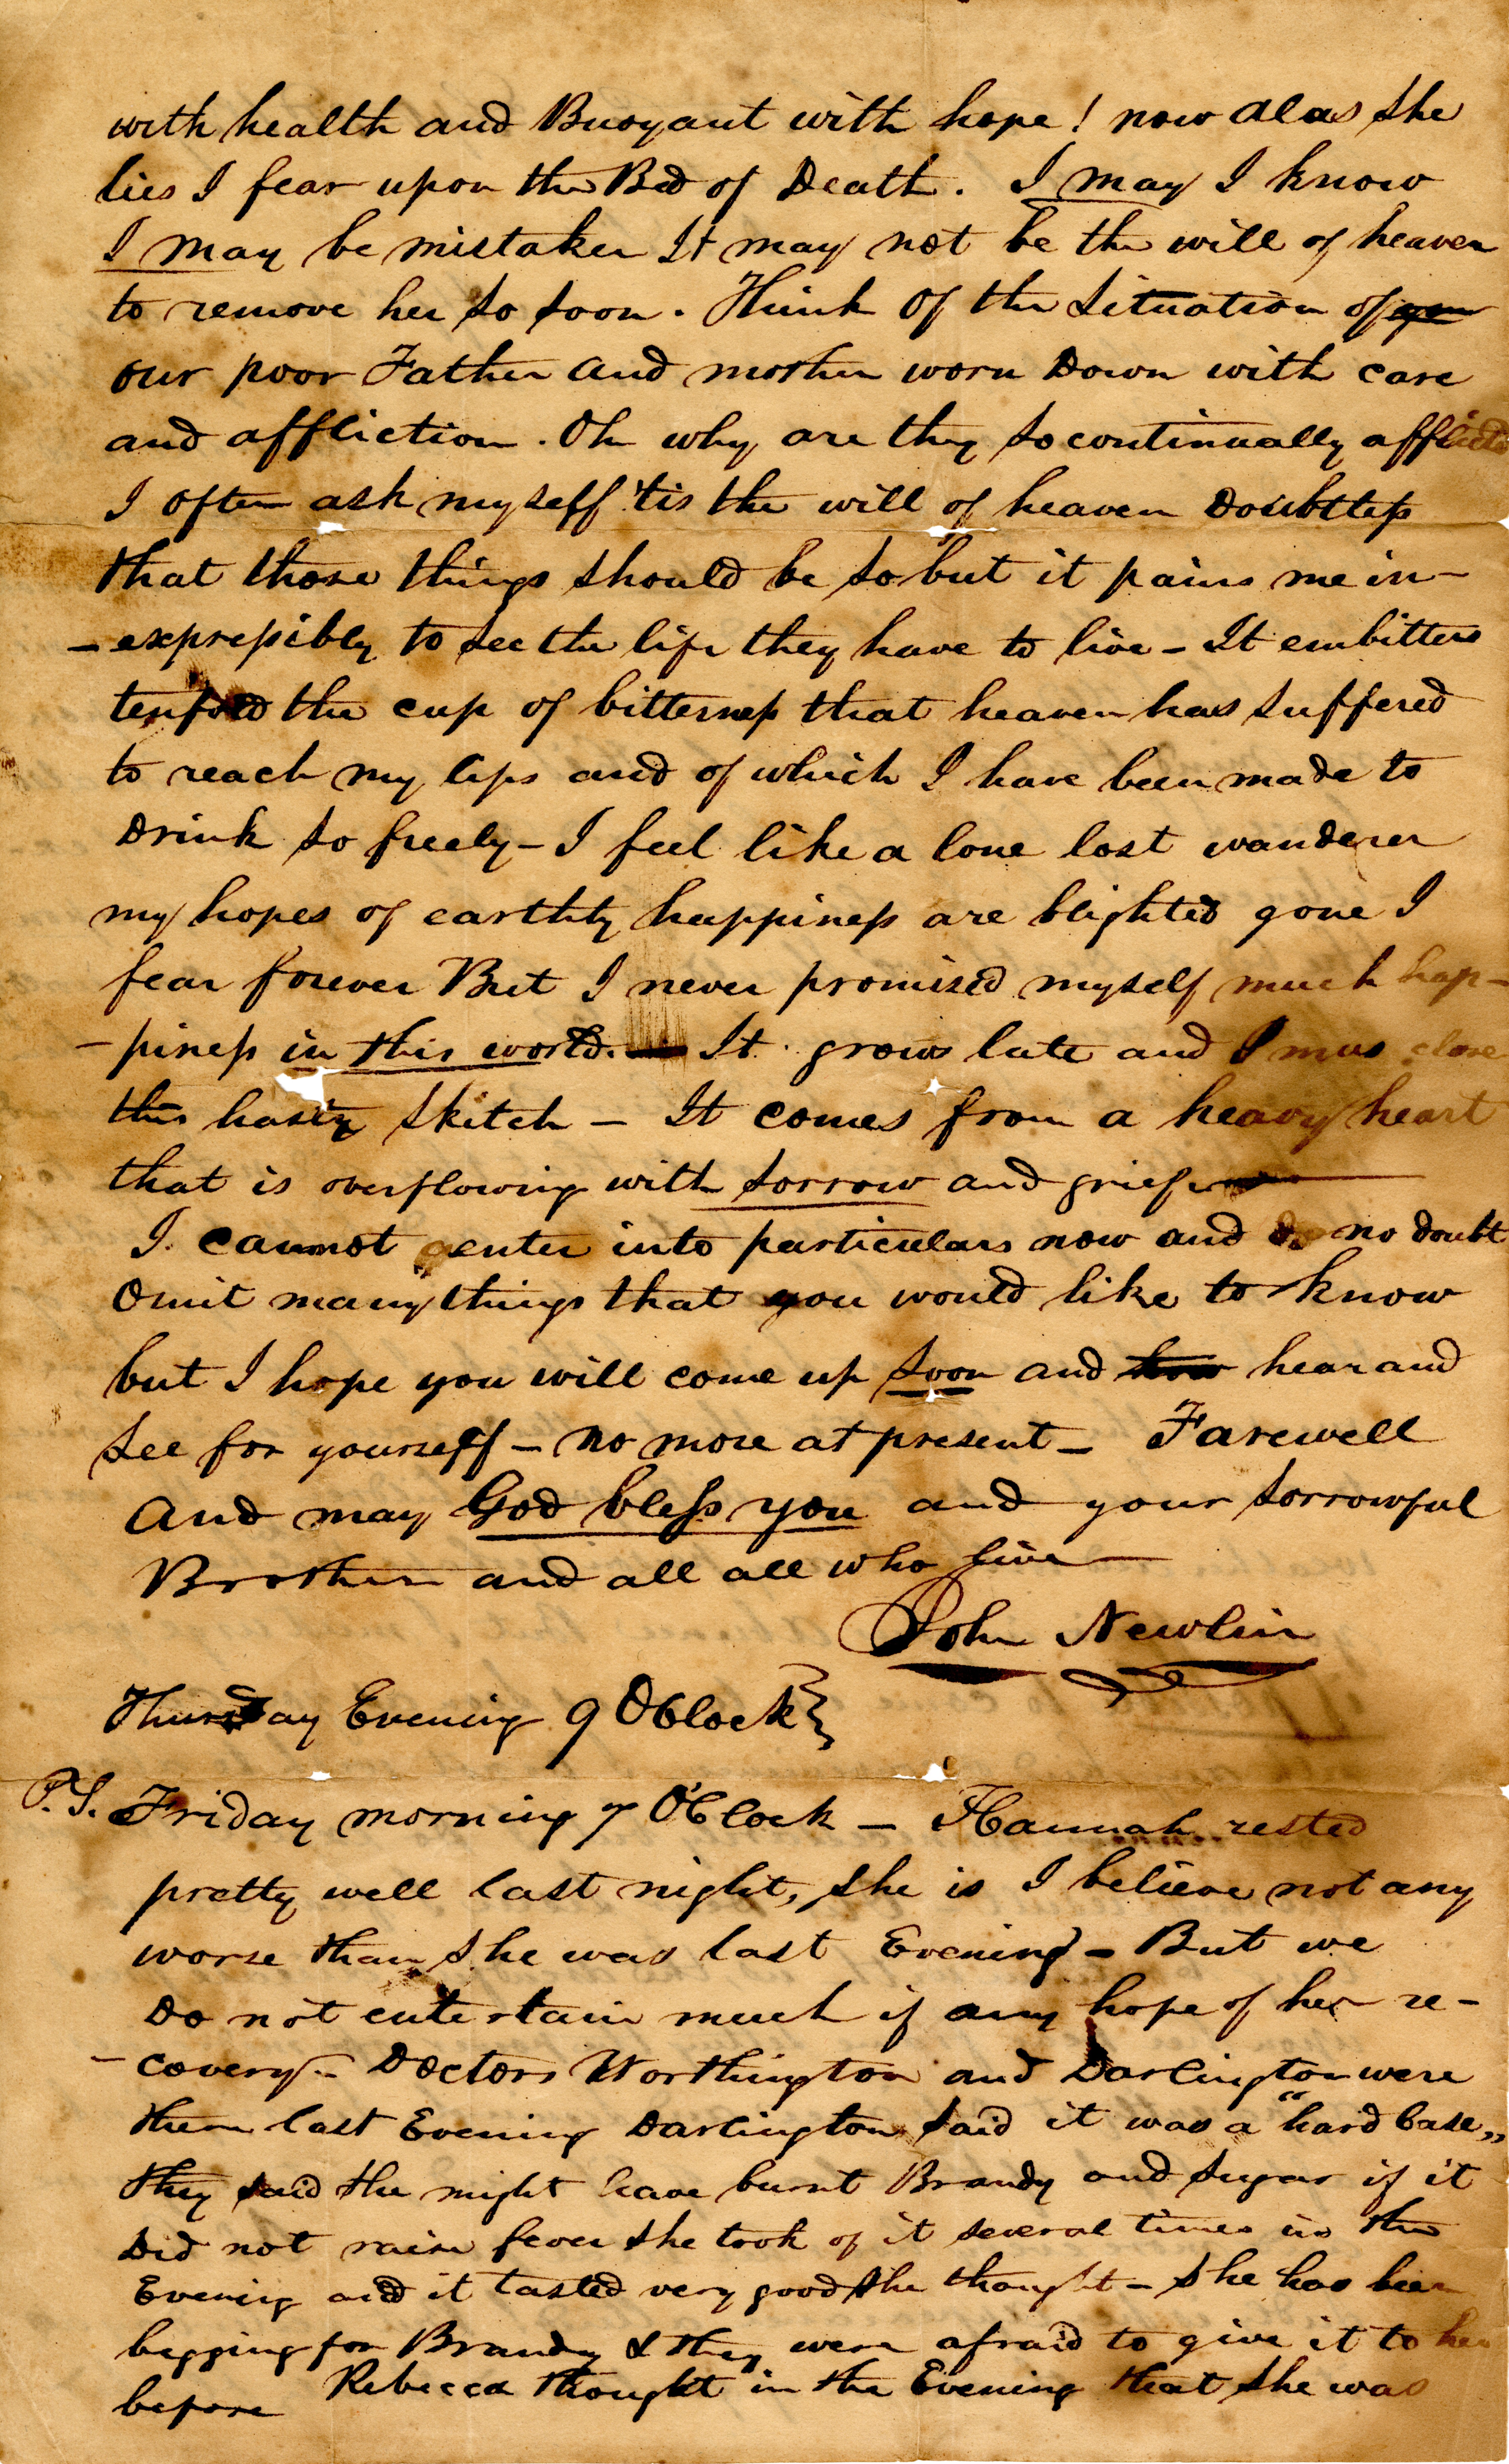 with health and Buoyant with hope! now alas she
lies I fear upon the Bed of Death. I may I know
I may be mistaken It may not be the will of heaven
to remove her so soon. Think of the situation of
our poor Father and mother worn Down with care
and affliction. Oh why are they so continually afflicted
I often ask myself 'tis the will of heaven Doubtless
that those things should be so but it pains me in-
-expressibly to see the life they have to live - It embitters
tenfold the cup of bitterness that heaven has suffered
to reach my lips and of which I have been made to
Drink so freely - I feel like a lone lost wanderer
my hopes of earthly happiness are blighted gone I
fear forever But I never promised myself much hap-
-piness in this world. It grows late and I mus close
this hasty sketch - It comes from a heavy heart
that is overflowing with sorrow and grief
I cannot enter into particulars now and do no doubt
Omit many things that you would like to know
but I hope you will come up soon and hear and
see for yourself - no more at present - Farewell
and may God bless you and your sorrowful
Brother and all all who live
John Newlin
Thursday Evening 9 OClock
P.S. Friday morning 7 O'Clock - Hannah rested
pretty well last night, she is I believe not any
worse than she was last Evening - But we
Do not entertain much if any hope of her re-
-covery - Doctors Worthington and Darlington were
there last Evening Darlington said it was a "hard Case,,
they said she might have burnt Brandy and sugar if it
Did not raise fever she took of it several times in the
Evening and it tasted very good she thought - she has been
begging for Brandy & they were afraid to give it to her
before Rebecca thought in the Evening that she was